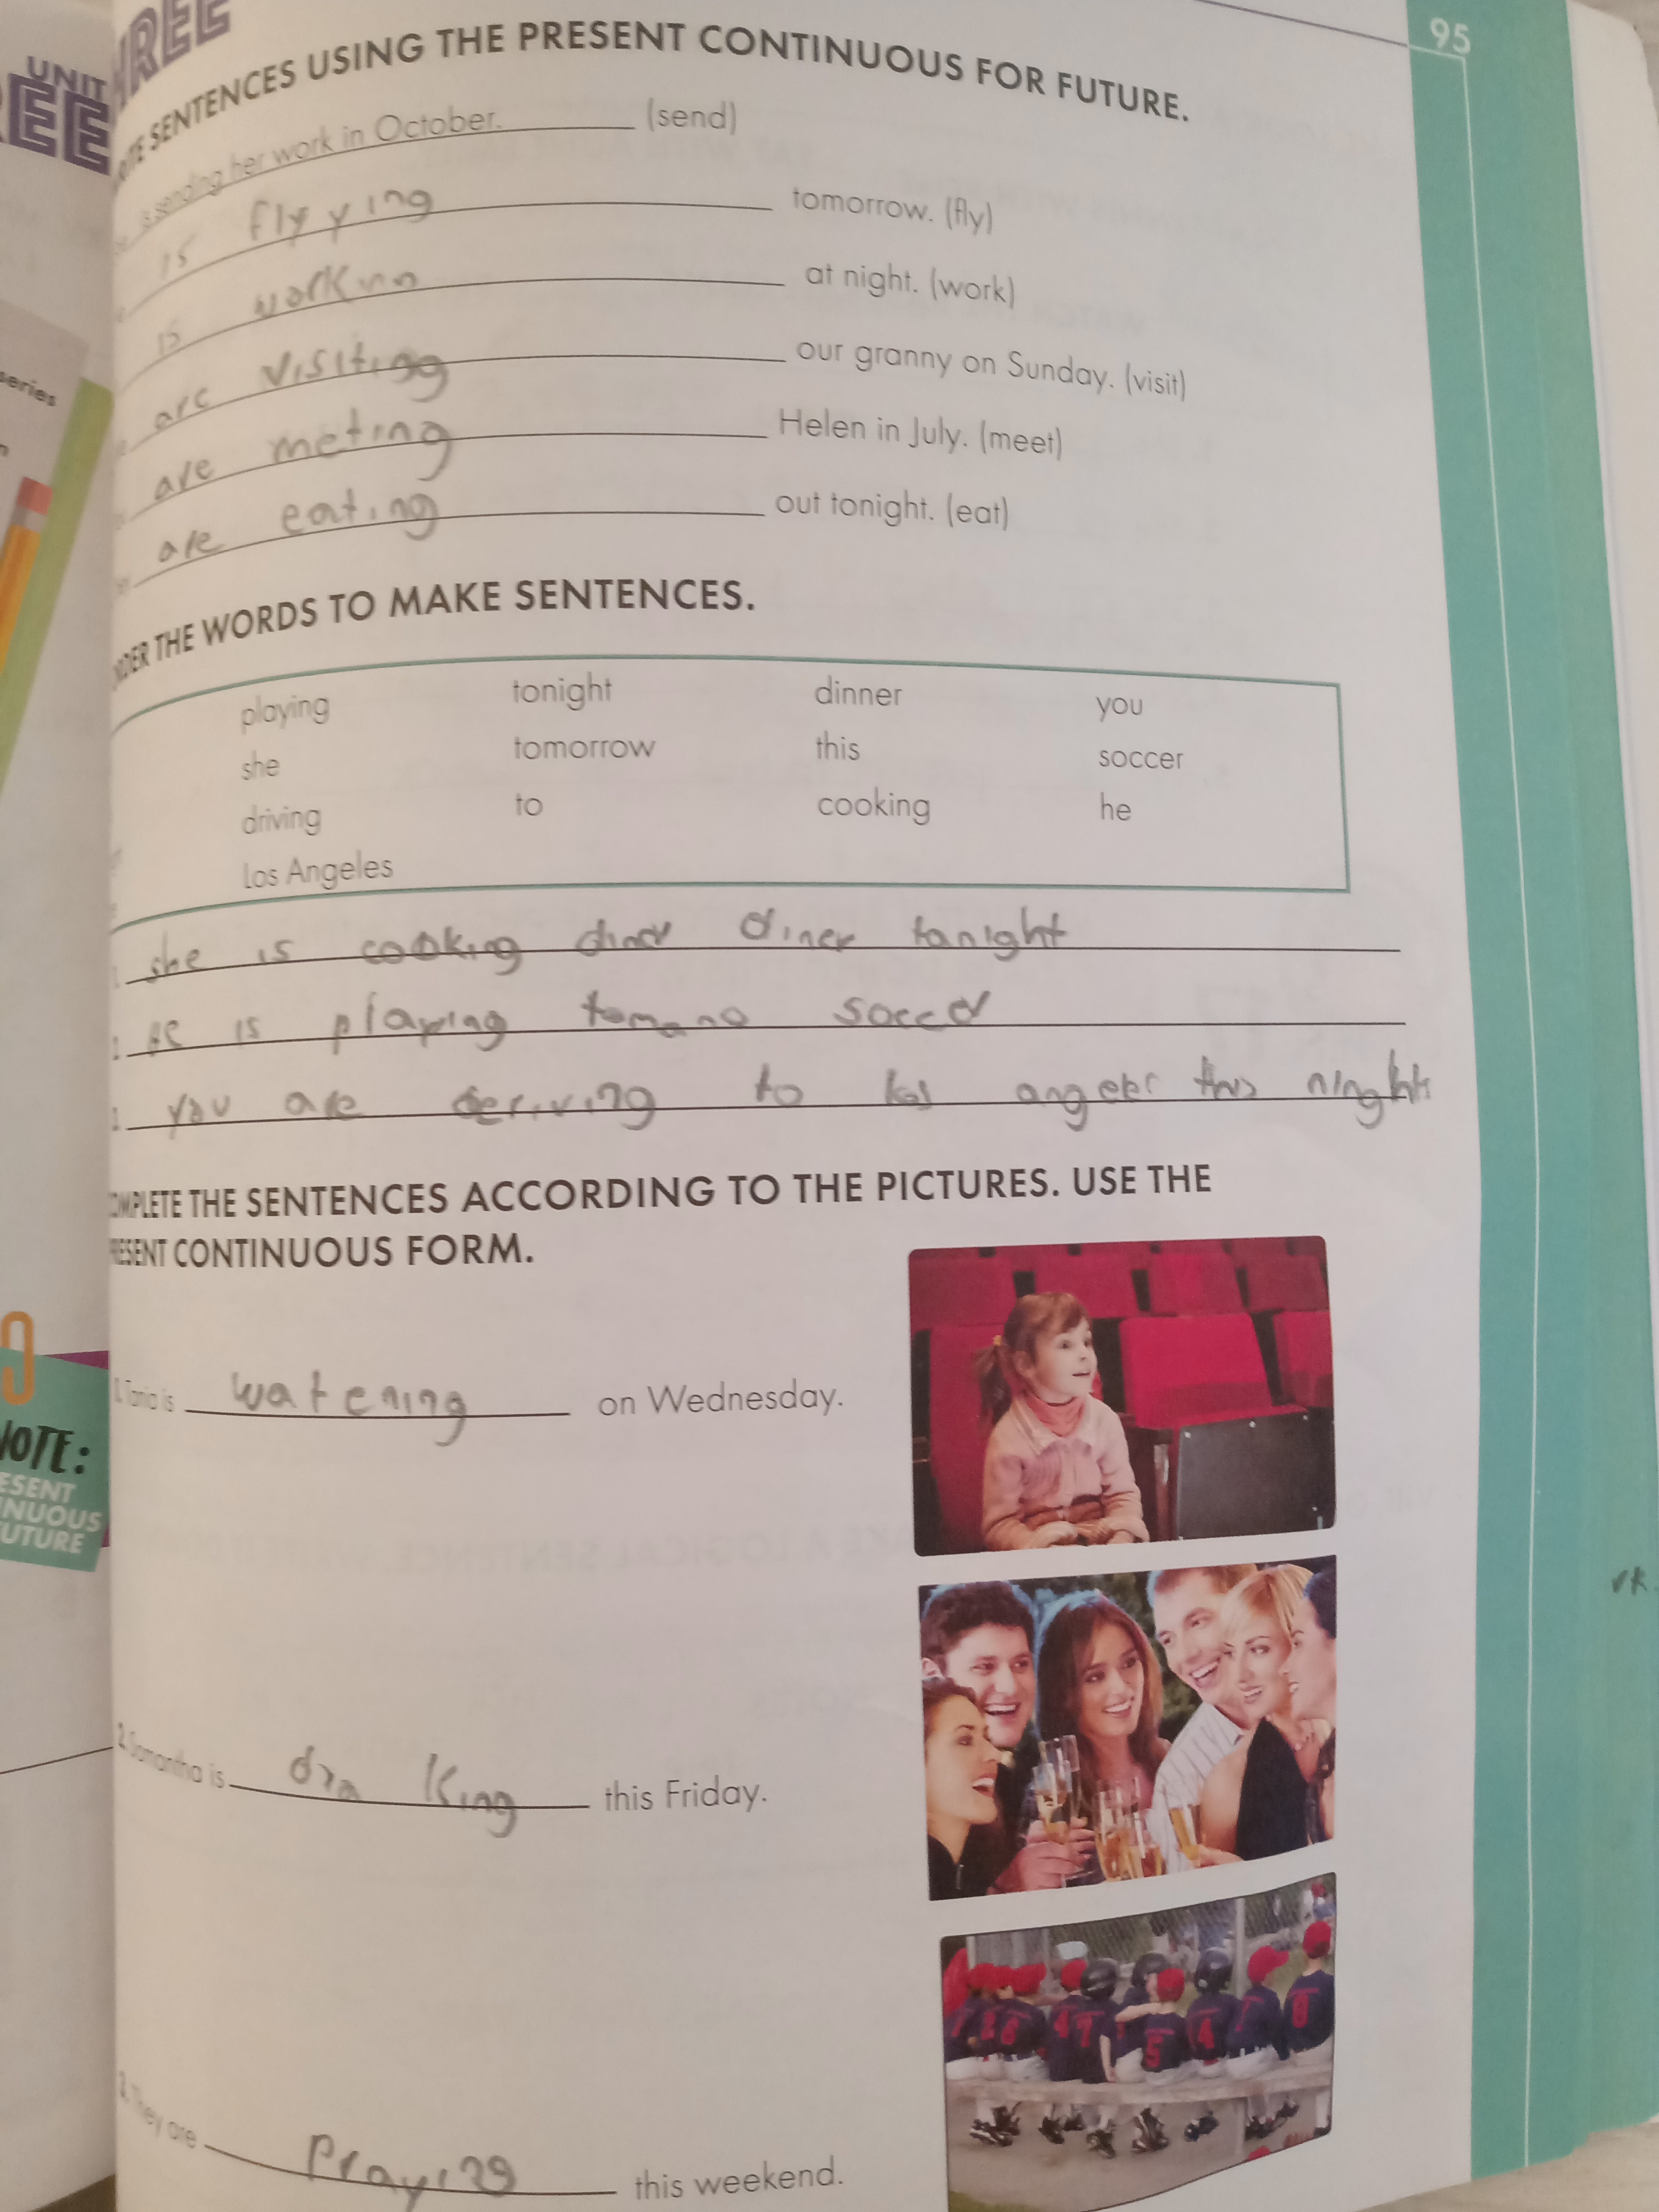 95
UNIT
THREE
SENTENCES USING THE PRESENT CONTINUOUS FOR FUTURE.
is sending her work in October. (send)
is flyying tomorrow. (fly)
is workng at night. (work)
are visiting our granny on Sunday. (visit)
are meting Helen in July. (meet)
are eating out tonight. (eat)
THE WORDS TO MAKE SENTENCES.
playing tonight dinner you
she tomorrow this soccer
driving to cooking he
Los Angeles
1. she is cooking diner tanight
2. He is playing soccer
3. you are deriving to los this
COMPLETE THE SENTENCES ACCORDING TO THE PICTURES. USE THE
PRESENT CONTINUOUS FORM.
1. Tania is watching on Wednesday.
2. Samantha is this Friday.
3. They are playing this weekend.
series
NOTE:
PRESENT
CONTINUOUS
FUTURE